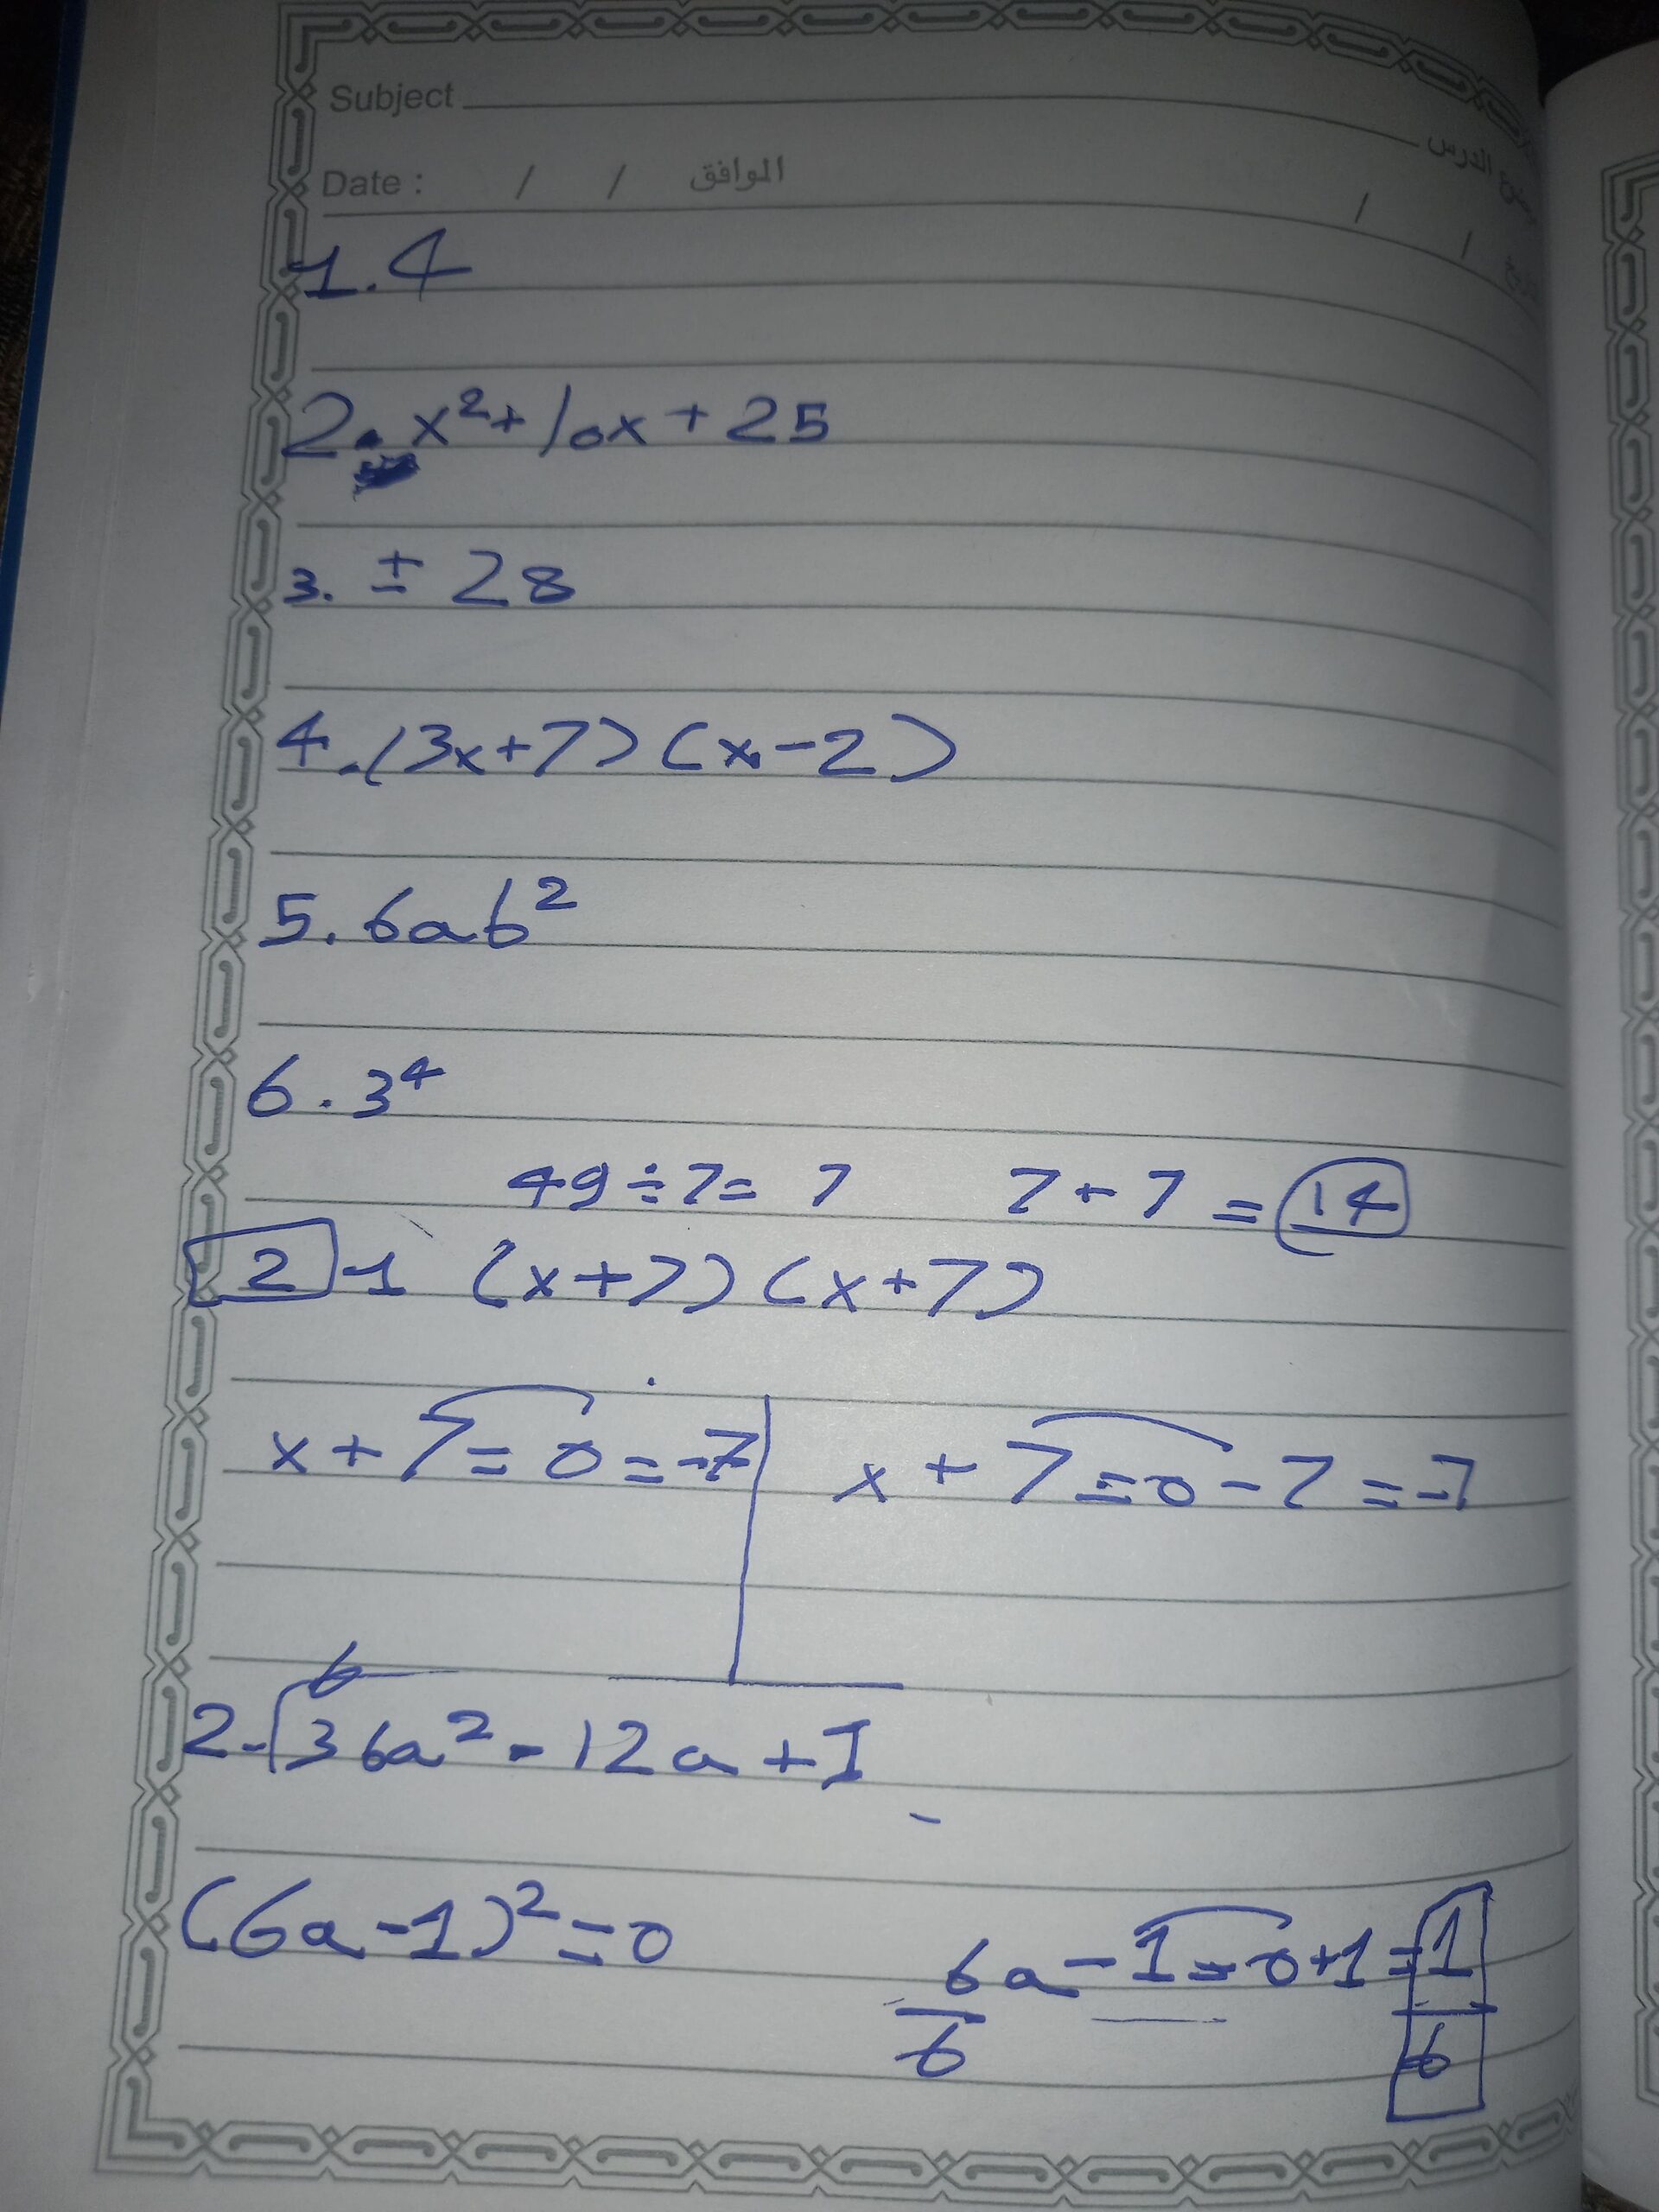 Subject موضوع الدرس
Date : / / الموافق / / التاريخ
1. 4
2. x² + 10x + 25
3. ± 28
4. (3x+7) (x-2)
5. 6ab²
6. 3⁴
49÷7= 7 7+7 = 14
2 -1 (x+7) (x+7)
x+7=0=-7 x+7=0-7=-7
6
2-√36a²-12a+1
(6a-1)²=0 6a-1=0+1=1
6 6